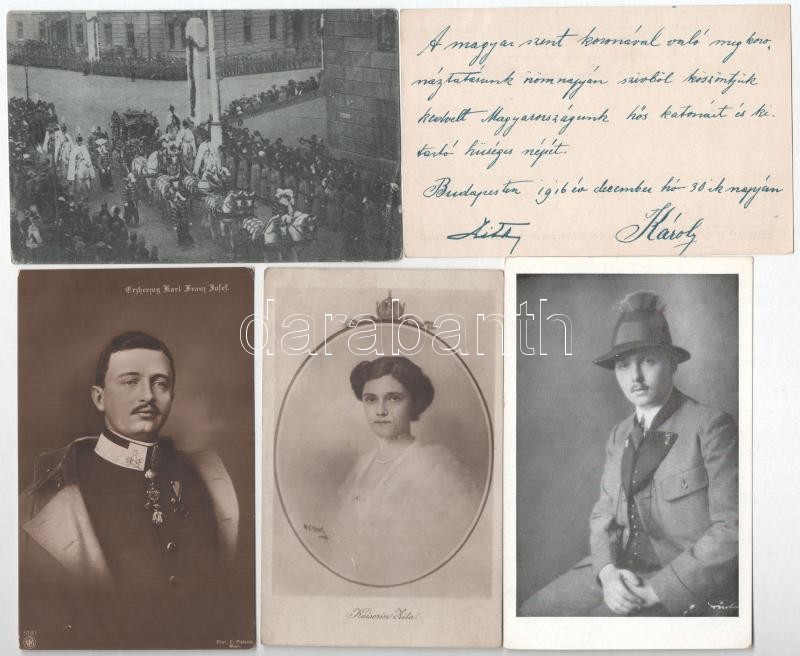 A magyar szent koronával való megkoro-
náztatásunk örömnapján szivből köszöntjük
kedvelt Magyarországunk hős katonáit és ki-
tartó hüséges népét.
Budapesten 1916 év december hó 30-ik napján
Zita Károly
Erzherzog Karl Franz Josef.
darabanth
Kaiserin Zita.
Phot. C. Pietzner
Wien.